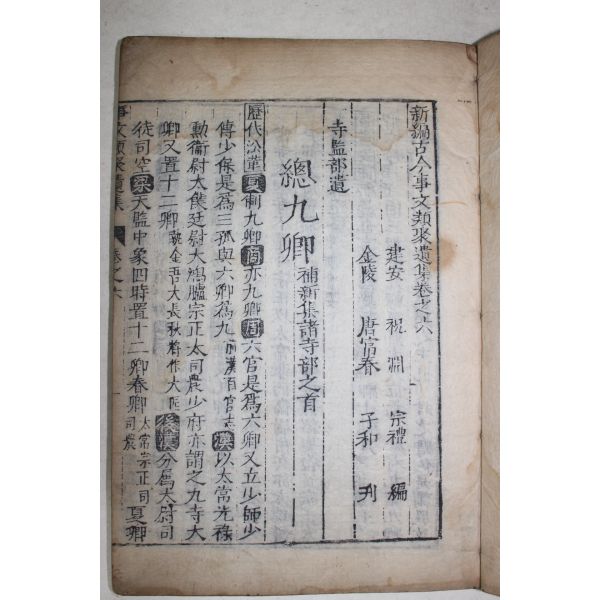 新編古今事文類聚遺集卷之六
建安 祝 淵 宗禮 編
金陵 唐富春 子和 刋
寺監部遺
總九卿 補新集諸寺部之首
歷代沿革 夏制九卿 商亦九卿 周六官是爲六卿又立少師少
傅少保是爲三孤與六卿爲九 前漢百官志 漢以太常光祿
勳衞尉太僕廷尉大鴻臚宗正大司農少府亦謂之九寺大
卿又置十二卿 執金吾大長秋將作大匠 後漢分屬太尉司
徒司空 梁天監中象四時置十二卿春卿 太常宗正司司農 夏卿
事文類聚遺集 卷之六